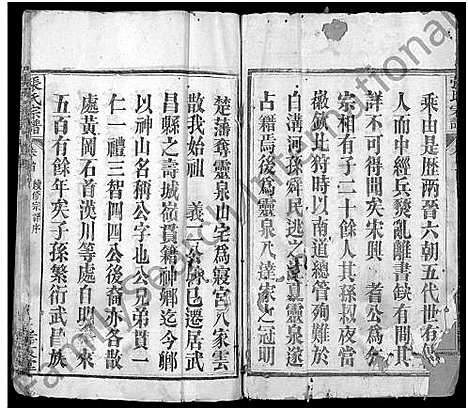 乘由是歷兩晉六朝五代世有傳
人而中經兵燹亂離書缺有間其
詳不可得聞矣宋興 者公爲馬
宗相有子二十餘人其孫叔夜當
徽欽北狩時以南道總管殉難於
白溝河孫舜民逃之江夏靈泉遂
占籍焉後爲靈泉八達家之冠明
楚藩奪靈泉山宅爲寢宮八家雲
散我始祖 義一公偕兄遷居武
昌縣之壽城嶺貫籍神鄉迄今鄉
以神山名稱公字也公兄弟貫一
仁一禮三智四四公後裔亦各散
處黃岡石首漢川等處自明以來
五百有餘年矣子孫繁衍武昌族
張氏宗譜
卷首
續修宗譜序
孝友堂